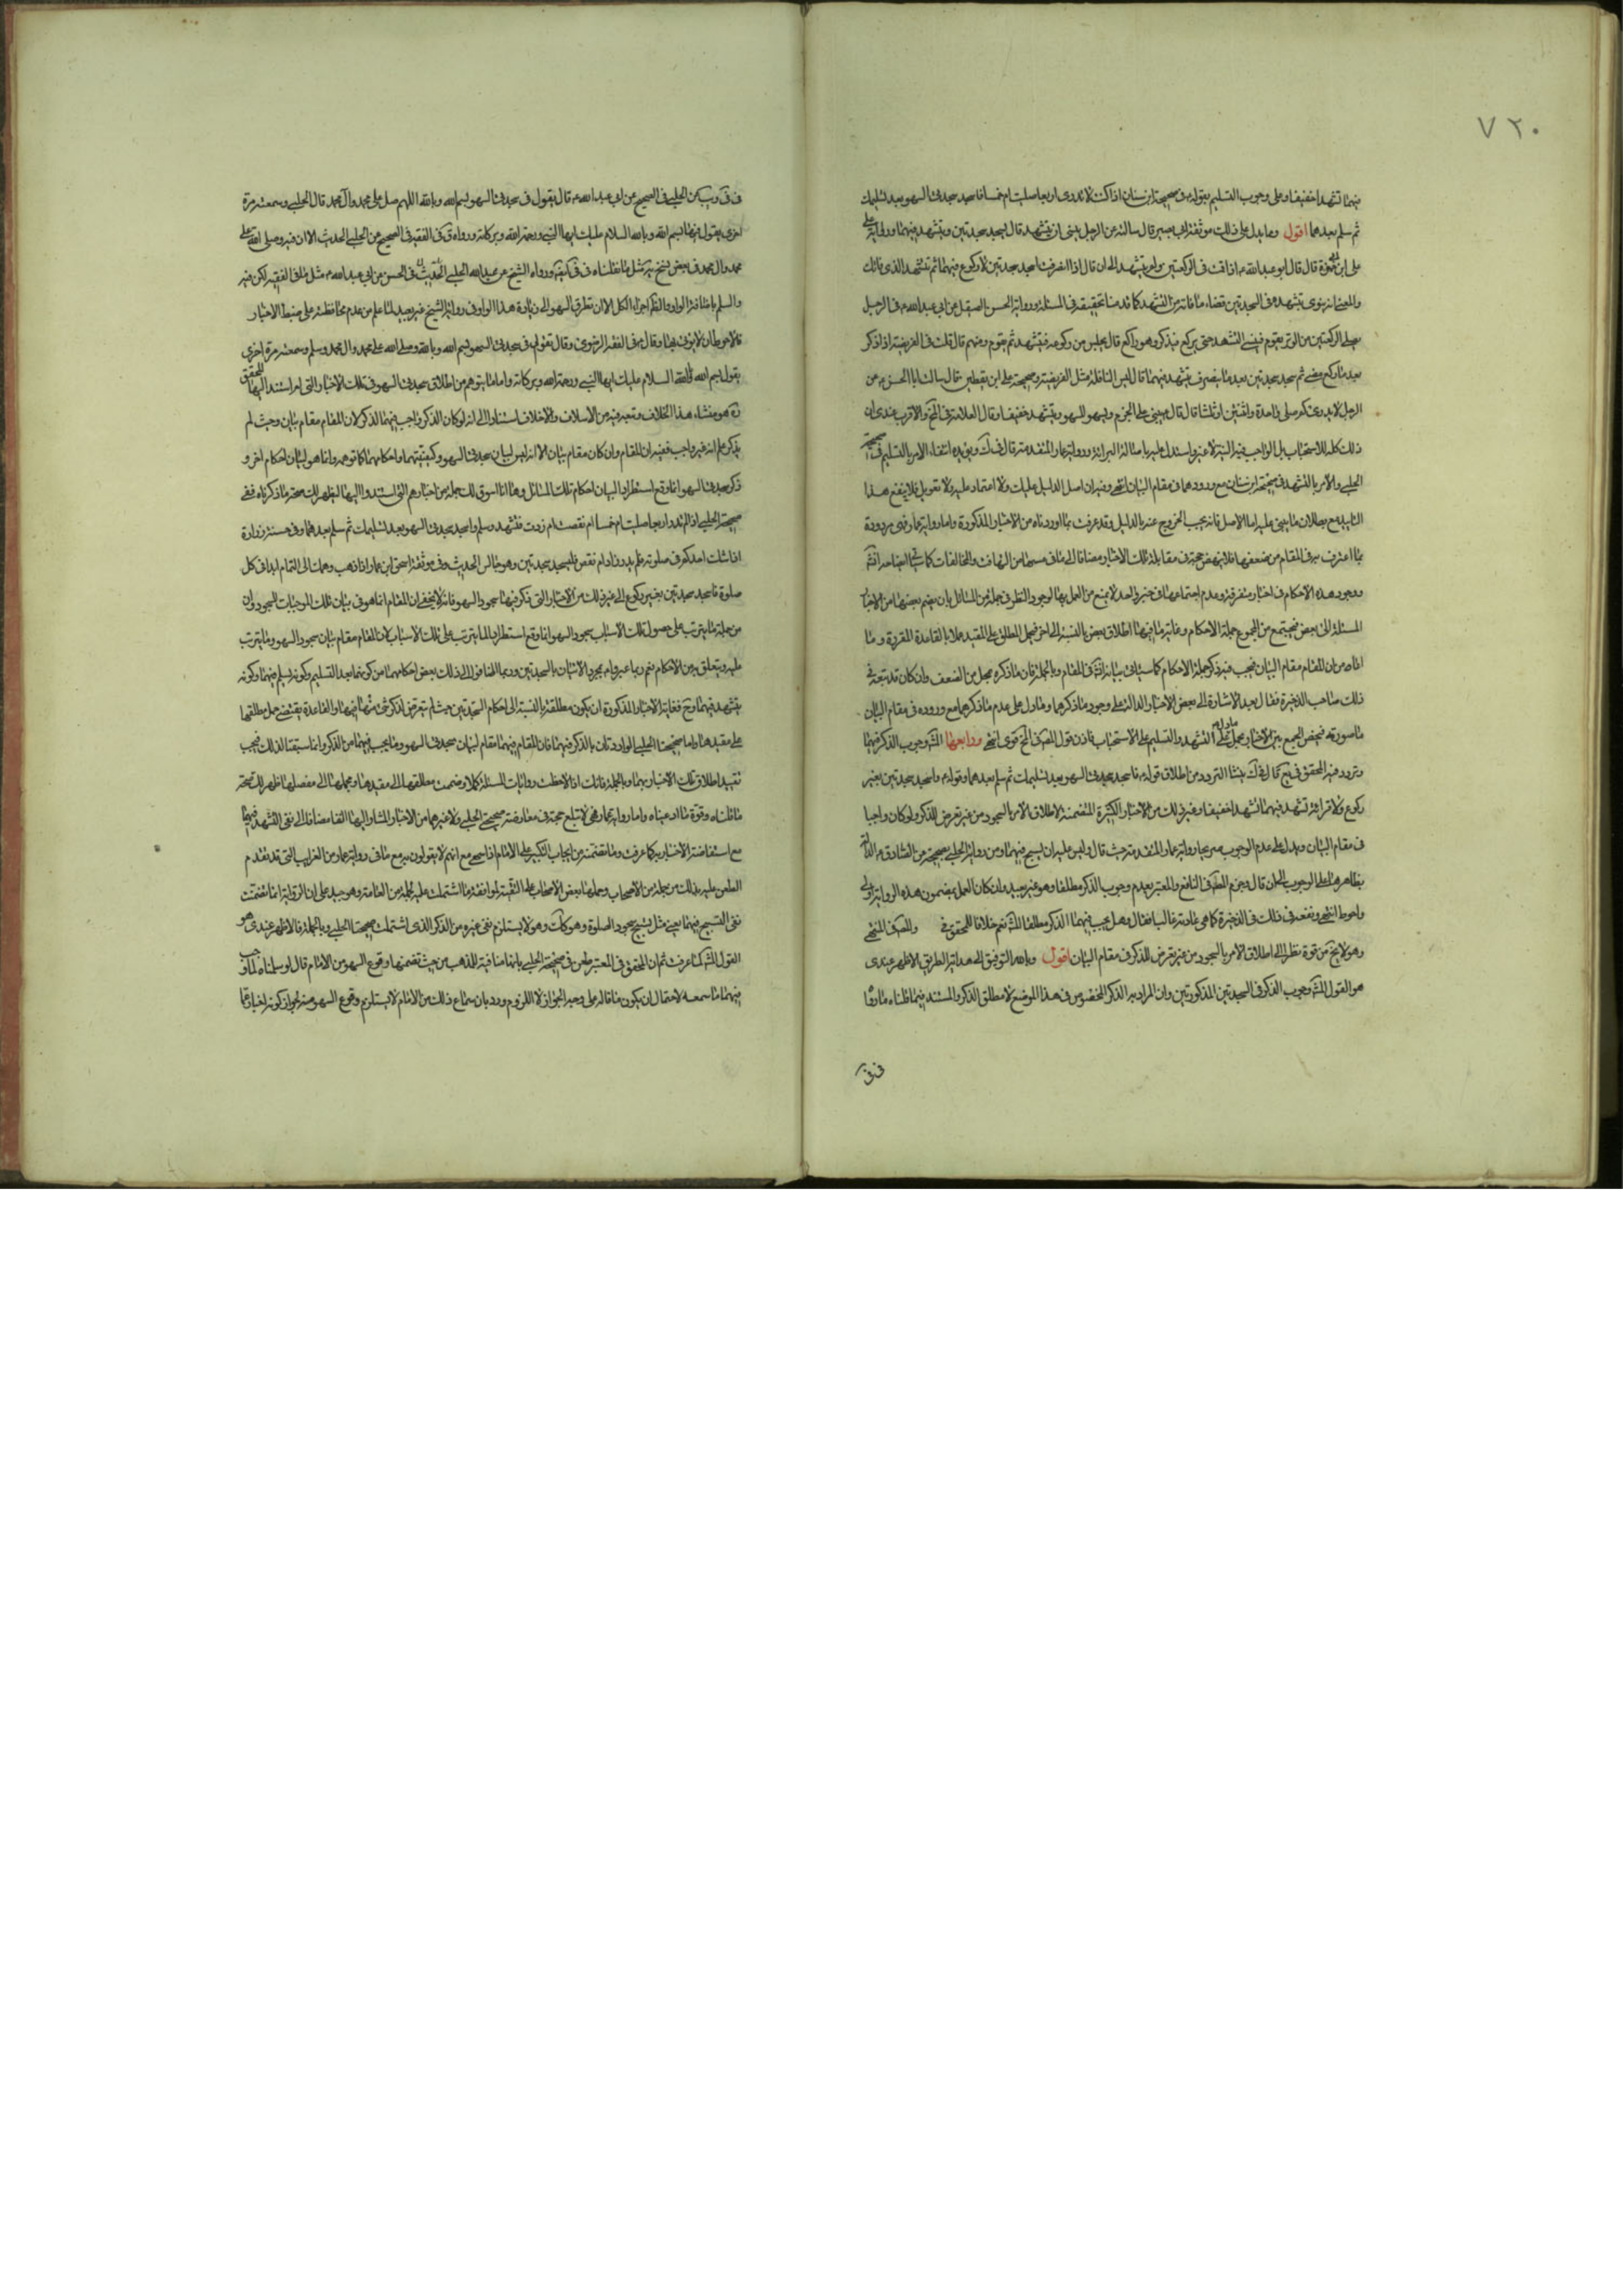 ٧٢٠
فيهما تشهدا خفيفا وعلى وجوب التسليم بقوله ع في صحيحة ابن سنان اذا كنت لا تدري اربعا صليت ام خمسا فاسجد سجدتي السهو بعد تسليمك
ثم سلم بعدهما اقول ومما يدل على ذلك موثقة ابي بصير قال سالته عن الرجل ينسى ان يتشهد قال يسجد سجدتين ويتشهد فيهما ورواية
على ابن حمزة قال قال ابو عبدالله ع اذا قمت في الركعتين ولم تتشهد قال اذا انصرفت سجدت سجدتين لا ركوع فيهما ثم تتشهد الذي فاتك
والمعنى انه ينوي بتشهده في السجدتين قضاء ما فاته من التشهد كما قدمنا تحقيقه في المسئلة ورواية الحسن الصيقل عن ابي عبدالله ع في الرجل
يصلي الركعتين من الوتر يقوم فينسى التشهد حتى يركع فيذكر وهو راكع قال يجلس من ركوعه فيتشهد ثم يقوم فيتم قال قلت في الفريضة اذا ذكر
بعد ما ركع مضى ثم سجد سجدتين بعد ما ينصرف يتشهد فيهما قال ليس النافلة مثل الفريضة وصحيحة علي ابن يقطين قال سالت ابا الحسن ع عن
الرجل لا يدري كم صلى واحدة او اثنتين او ثلثا قال يبني على الجزم ويسجد للسهو ويتشهد خفيفا وقال العلامة في والاقرب عندي ان
ذلك كله للاستحباب بل الواجب فيه النية لا غير واستدل عليه باصالة البراءة ورواية عمار المتقدمة قال في ك ويؤيده انتفاء الامر بالتسليم في صحيحة
الحلبي والامر بالتشهد في صحيحة ابن سنان مع ورودهما في مقام البيان انتهى وفيه ان اصل الدليل عليك ولا اعتماد عليه ولا تعويل فلا ينفع هذا
التاييد مع بطلان ما يبنى عليه اما الاصل فانه يجب الخروج عنه بالدليل وقد عرفت مما اوردناه من الاخبار المذكورة واما رواية عمار فهي مردودة
بما اعترف به في المقام من ضعفها فلا ينهض حجة في مقابلة تلك الاخبار مضافا الى ما في من التهافت والمخالفات
ووجود هذه الاحكام في اخبار متفرقة وعدم اجتماعها في خبر واحد لا يمنع من العمل بها لوجود النظر في جملة من المسائل بان يضم بعضها من الاخبار
المسئلة الى بعض فيجتمع من المجموع جملة الاحكام وغاية ما فيها اطلاق بعض بالنسبة الى اخر فيحمل المطلق على المقيد عملا بالقاعدة المقررة وما
افاده من ان المقام مقام البيان فيجب فيه ذكر جملة الاحكام كما سياتي بيانه في المقام وبالجملة فان ما ذكره بمحل من الضعف وان كان قد تبعه في
ذلك صاحب الذخيرة فقال بعد الاشارة الى بعض الاخبار الدالة على وجود ما ذكرهما وما دل على عدم ما ذكرهما مع وروده في مقام البيان
ما صورته فيحصل الجمع بين الاخبار بحمل ما دل على التشهد والتسليم على الاستحباب فاذن قول المصنف قوي انتهى ورابعها وجوب الذكر فيهما
وتردد فيه المحقق في يع قال في ك ينشا التردد من اطلاق قوله ع فاسجد سجدتي السهو بعد تسليمك ثم سلم بعدهما وقوله ع واسجد سجدتين بغير
ركوع ولا قراءة تشهد فيهما تشهدا خفيفا وغير ذلك من الاخبار الكثيرة المتضمنة لاطلاق الامر بالسجود من غير تعرض للذكر ولو كان واجبا
في مقام البيان ويدل على عدم الوجوب صريحا رواية عمار المتقدمة حيث قال وليس عليه ان يسبح فيهما ومن رواية الحلبي صحيحة عن الصادق ع الدالة
بظاهرها على الوجوب الى ان قال وجزم المصنف في النافع والمعتبر بعدم وجوب الذكر مطلقا وهو غير بعيد وان كان العمل بمضمون هذه الرواية اولى
واحوط انتهى وتبعه في ذلك في الذخيرة كما هي عادته غالبا فقال وهل يجب فيهما الذكر مطلقا نعم خلافا للمحقق في والمصنف في المنتهى
وهو لا يخ من قوة نظرا الى اطلاق الامر بالسجود من غير تعرض للذكر في مقام البيان اقول وبالله التوفيق الى هداية الطريق الاظهر عندي
هو القول وجوب الذكر في السجدتين المذكورتين وان المراد به الذكر المخصوص في هذا الموضع لا مطلق الذكر والمستند فيما قلناه ما رواه
في في
في في ويب عن الحلبي في الصحيح عن ابي عبدالله ع قال يقول في سجدتي السهو بسم الله وبالله اللهم صل على محمد وال محمد قال الحلبي وسمعته مرة
اخرى يقول فيهما بسم الله وبالله السلام عليك ايها النبي ورحمة الله وبركاته ورواه في الفقيه في الصحيح عن الحلبي الحديث الا ان فيه وصلى الله على
محمد وال محمد في بعض نسخ مثل ما نقلناه في في ورواه الشيخ عن عبيدالله الحلبي الحديث في الحسن عن ابي عبدالله ع مثل ما في الفقيه لكن فيه
والسلم باضافة الواو والظ اجزاء الكل الا ان تطرق السهو الى زيادة هذا الواو في رواية الشيخ غير بعيد لما علم من عدم محافظته على ضبط الاخبار
فالاحوط ان لا يؤتى بها وقال في الفقه الرضوي وقال تقول في سجدتي السهو بسم الله وبالله وصلى الله على محمد وال محمد وسلم وسمعته مرة اخرى
يقول بسم الله وبالله السلام عليك ايها النبي ورحمة الله وبركاته واما ما يتوهم من اطلاق سجدتي السهو في تلك الاخبار التي استند اليها المحقق
هو منشاء هذا الخلاف وتبعه فيه من الاسلاف والاخلاف استنادا الى انه لو كان الذكر واجب فيهما لذكر لان المقام مقام بيان وحيث لم
يذكر علم انه غير واجب ففيه ان المقام وان كان مقام بيان الا انه ليس لبيان سجدتي السهو وكيفيتهما واحكامهما كما توهمه وانما هو لبيان احكام اخر و
ذكر سجدتي السهو انما وقع استطرادا لبيان احكام تلك المسائل وها انا اسوق لك جملة من اخبارهم التي استندوا اليها ليظهر لك صحة ما ذكرناه ففي
صحيحة الحلبي اذا لم تدر اربعا صليت ام خمسا ام نقصت ام زدت فتشهد وسلم واسجد سجدتي السهو بعد تسليمك ثم سلم بعدهما وفي حسنة زرارة
اذا شك احدكم في صلوته فلم يدر زاد ام نقص فليسجد سجدتين وهو جالس الحديث وفي موثقة اسحق ابن عمار اذا ذهب وهمك الى التمام ابدا في كل
صلوة فاسجد سجدتين بغير ركوع الى غير ذلك من الاخبار التي ذكر فيها سجود السهو فانه لا يخفى ان المقام انما هو في بيان تلك الموجبات للسجود وان
من جملة ما يترتب على حصول تلك الاسباب سجود السهو انما وقع استطرادا لما يترتب على تلك الاسباب لا ان المقام مقام بيان سجود السهو وما يترتب
عليه ويتعلق به من الاحكام نعم ربما عبر الامام بمجرد الاتيان بالسجدتين وربما اضافوا الى ذلك بعض احكامهما من كونهما بعد التسليم وكونه يسلم فيهما وكونه
يتشهد فيهما وح فغاية الاخبار المذكورة ان يكون مطلقة بالنسبة الى احكام السجدتين حيث لم يتعرض لذكر شيء منها فيها والقاعدة يقتضي حمل مطلقها
على مقيدها واما صحيحتا الحلبي الواردتان بالذكر فيهما فان المقام فيهما مقام لبيان سجدتي السهو وما يجب فيهما من الذكر وانما سيقتا لذلك فيجب
تقييد اطلاق تلك الاخبار بهما وبالجملة فانك اذا لاحظت روايات المسئلة كملا وضممت مطلقها الى مقيدها ومجملها الى مفصلها ظهر لك صحة
ما قلناه وقوة ما ادعيناه واما رواية عمار فهي لا تبلغ حجة في معارضة صحيحتي الحلبي ولا غيرهما من الاخبار المشار اليها انفا مضافا الى نفي التشهد فيها
مع استفاضة الاخبار به كما عرفت وما تضمنته من ايجاب التكبير على الامام اذا سها مع انهم لا يقولون به مع ما في رواية عمار من الغرايب التي قد تقدم
الطعن عليه بذلك من جملة من الاصحاب وحملها بعض الاصحاب على التقية لموافقة ما اشتملت عليه لجملة من العامة وهو جيد على ان الرواية انما تضمنت
نفي التسبيح فيهما يعني مثل تسبيح سجود الصلوة وهو كذلك وهو لا يستلزم نفي غيره من الذكر الذي اشتملت صحيحتا الحلبي وبالجملة فالاظهر عندي هو
القول كما عرفت ثم ان المحقق في المعتبر طعن في صحيحة الحلبي بانها منافية للمذهب من حيث تضمنها وقوع السهو من الامام قال لو سلمناه لما وجب
فيهما ما سمعه لاحتمال ان يكون ما قاله على وجه الجواز لا اللزوم ورد بان سماع ذلك من الامام لا يستلزم وقوع السهو منه لجواز كونه اخبارا